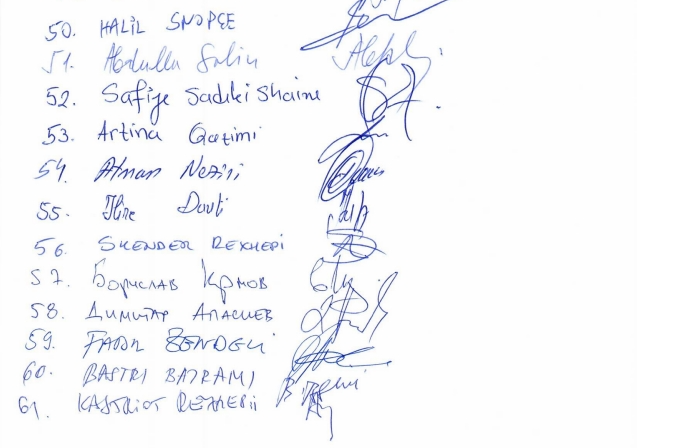 50. HALIL SNOPÇE
51. Abdulla Salin
52. Safije Sadiki Shaini
53. Artina Qazimi
54. Atman Neziri
55. Ilire Dauti
56. SKENDER REXHEPI
57. Борислав Крмов
58. ДИМИТАР АПАСИЕВ
59. FADIL ZENDELI
60. BASTRI BAJRAMI
61. KASTRIOT REXHEPII